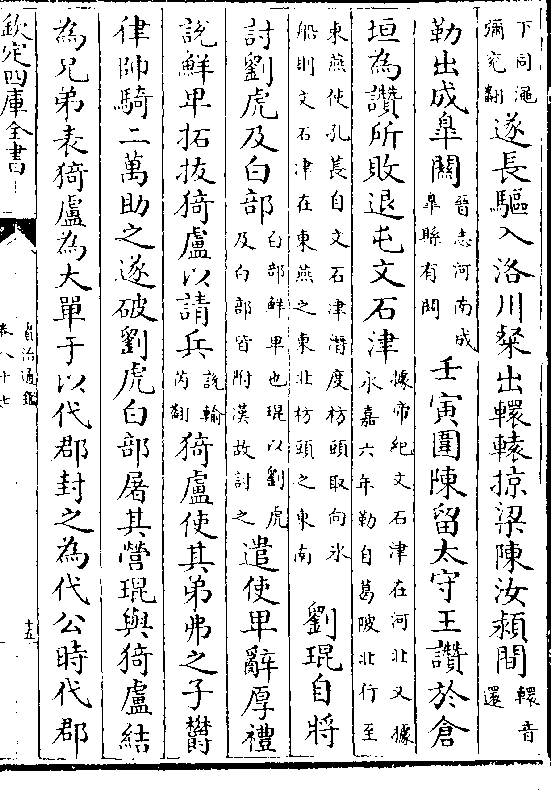 下同澠彌兖翻遂長驅入洛川粲出轘轅掠梁陳汝潁間轘音還
勒出成臯關晉志河南成臯縣有關壬寅圍陳留太守王讚於倉
垣為讚所敗退屯文石津據帝紀文石津在河北又據永嘉六年勒自葛陂北行至
東燕使孔萇自文石津潛度枋頭取向氷船則文石津在東燕之東北枋頭之東南劉琨自將
討劉虎及白部白部鮮卑也琨以劉虎及白部皆附漢故討之遣使卑辭厚禮
說鮮卑拓拔猗盧以請兵說輸芮翻猗盧使其弟弗之子鬱
律帥騎二萬助之遂破劉虎白部屠其營琨與猗盧結
為兄弟表猗盧為大單于以代郡封之為代公時代郡
欽定四庫全書
資治通鑑
卷八十七
十五